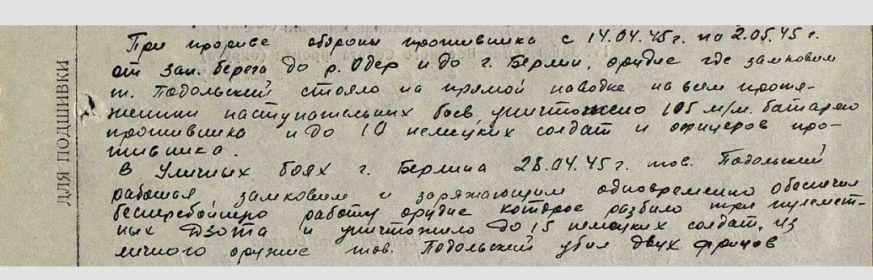 ДЛЯ ПОДШИВКИ
При прорыве обороны противника с 14.04.45г. по 2.05.45 г.
от зап. берега до р. Одер и до г. Берлин, орудие где замковым
т. Подольский стояло на прямой наводке на всем протя-
жении наступательных боев, уничтожено 105 м/м. батарею
противника и до 10 немецких солдат и офицеров про-
тивника.
В уличных боях г. Берлина 28.04.45г. тов. Подольский
работая замковым и заряжающим одновременно обеспечил
бесперебойную работу орудие которое разбило три пулемет-
ных дзота и уничтожило до 15 немецких солдат, из
личного оружие тов. Подольский убил двух фрицов